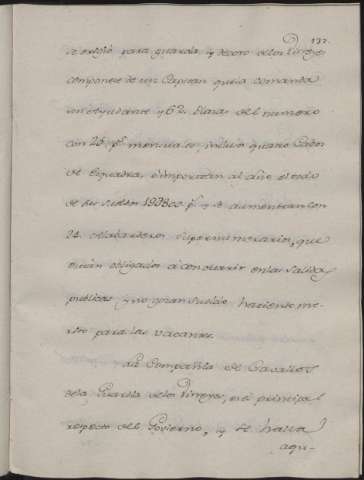 132.
se exigió para guardia, y decoro de los Virreyes
componese de un Capitan que la comanda
un Ayudante y 62 Plazas del numero
con 26 ps. mensuales, incluso quatro Cabos
de Esquadra, è importan al año el todo
de sus sueldos 19D800 ps. y se aumentan con
24 Alabarderos supernumerarios, que
están obligados à concurrir en las salidas
publicas y no gozan sueldo haciendo me-
rito para las vacantes.
La Compañia de Cavallos
de la Guardia de los Virreyes, es el principal
respecto del Govierno, y se halla
aqui-